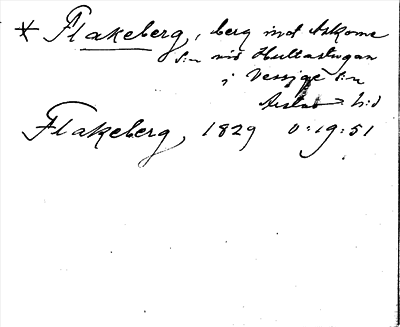 * Flakeberg, berg inot Askome
s:n vid Hultastugan
i Vessige s:n
Årstad h:d
Flakeberg, 1829 0:19:51